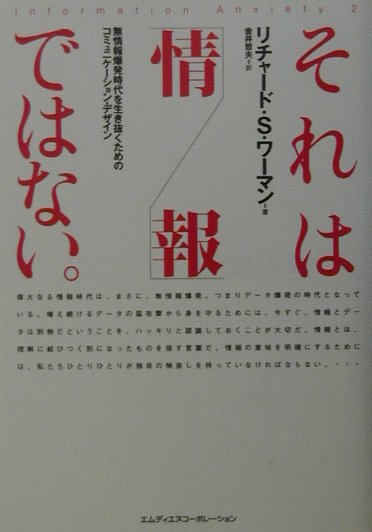 Information Anxiety 2
それは
「情報」
ではない。
リチャード・S・ワーマン=著
金井哲夫=訳
無情報爆発時代を生き抜くための
コミュニケーション・デザイン
偉大なる情報時代は、まさに、無情報爆発、つまりデータ爆発の時代となって
いる。増え続けるデータの猛攻撃から身を守るためには、今すぐ、情報とデー
タは別物だということを、ハッキリと認識しておくことが大切だ。情報とは、
理解に結びつく形になったものを指す言葉だ。情報の意味を明確にするために
は、私たちひとりひとりが独自の物差しを持っていなければならない。・・・
エムディエヌコーポレーション